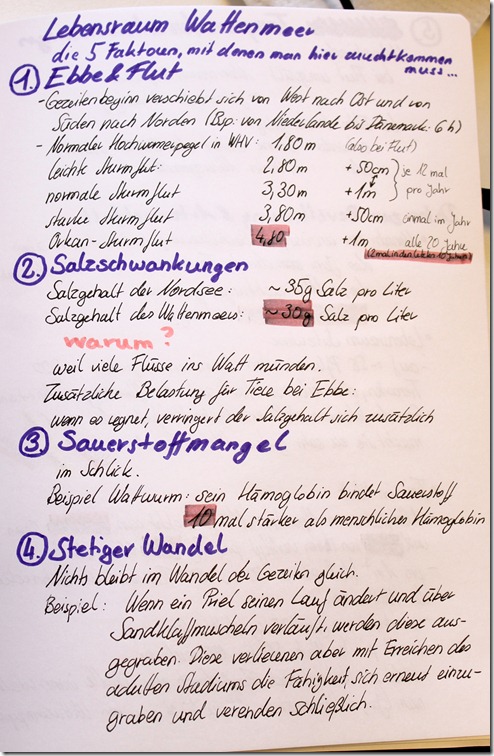 Lebensraum Wattenmeer
die 5 Faktoren, mit denen man hier zurechtkommen
muss...
1. Ebbe & Flut
- Gezeitenbeginn verschiebt sich von West nach Ost und von
Süden nach Norden (Bsp: von Niederlande bis Dänemark: 6 h)
- Normaler Hochwasserpegel in WHV: 1,80m (also bei Flut)
leichte Sturmflut: 2,80m +50cm je 12 mal
normale Sturmflut 3,30m +1m pro Jahr
starke Sturmflut 3,80m +50cm einmal im Jahr
Orkan-Sturmflut 4,80 +1m alle 20 Jahre
(2 mal in den letzten 10 Jahren)
2. Salzschwankungen
Salzgehalt der Nordsee: ~35g Salz pro Liter
Salzgehalt des Wattenmeers: ~30g Salz pro Liter
warum?
weil viele Flüsse ins Watt münden.
Zusätzliche Belastung für Tiere bei Ebbe:
wenn es regnet, verringert der Salzgehalt sich zusätzlich
3. Sauerstoffmangel
im Schlick.
Beispiel Wattwurm: sein Hämoglobin bindet Sauerstoff
10 mal stärker als menschliches Hämoglobin
4. Stetiger Wandel
Nichts bleibt im Wandel der Gezeiten gleich.
Beispiel: Wenn ein Priel seinen Lauf ändert und über
Sandklaffmuscheln verläuft, werden diese aus-
gegraben. Diese verlieren aber mit Erreichen des
adulten Stadiums die Fähigkeit, sich erneut einzu-
graben und verenden schließlich.